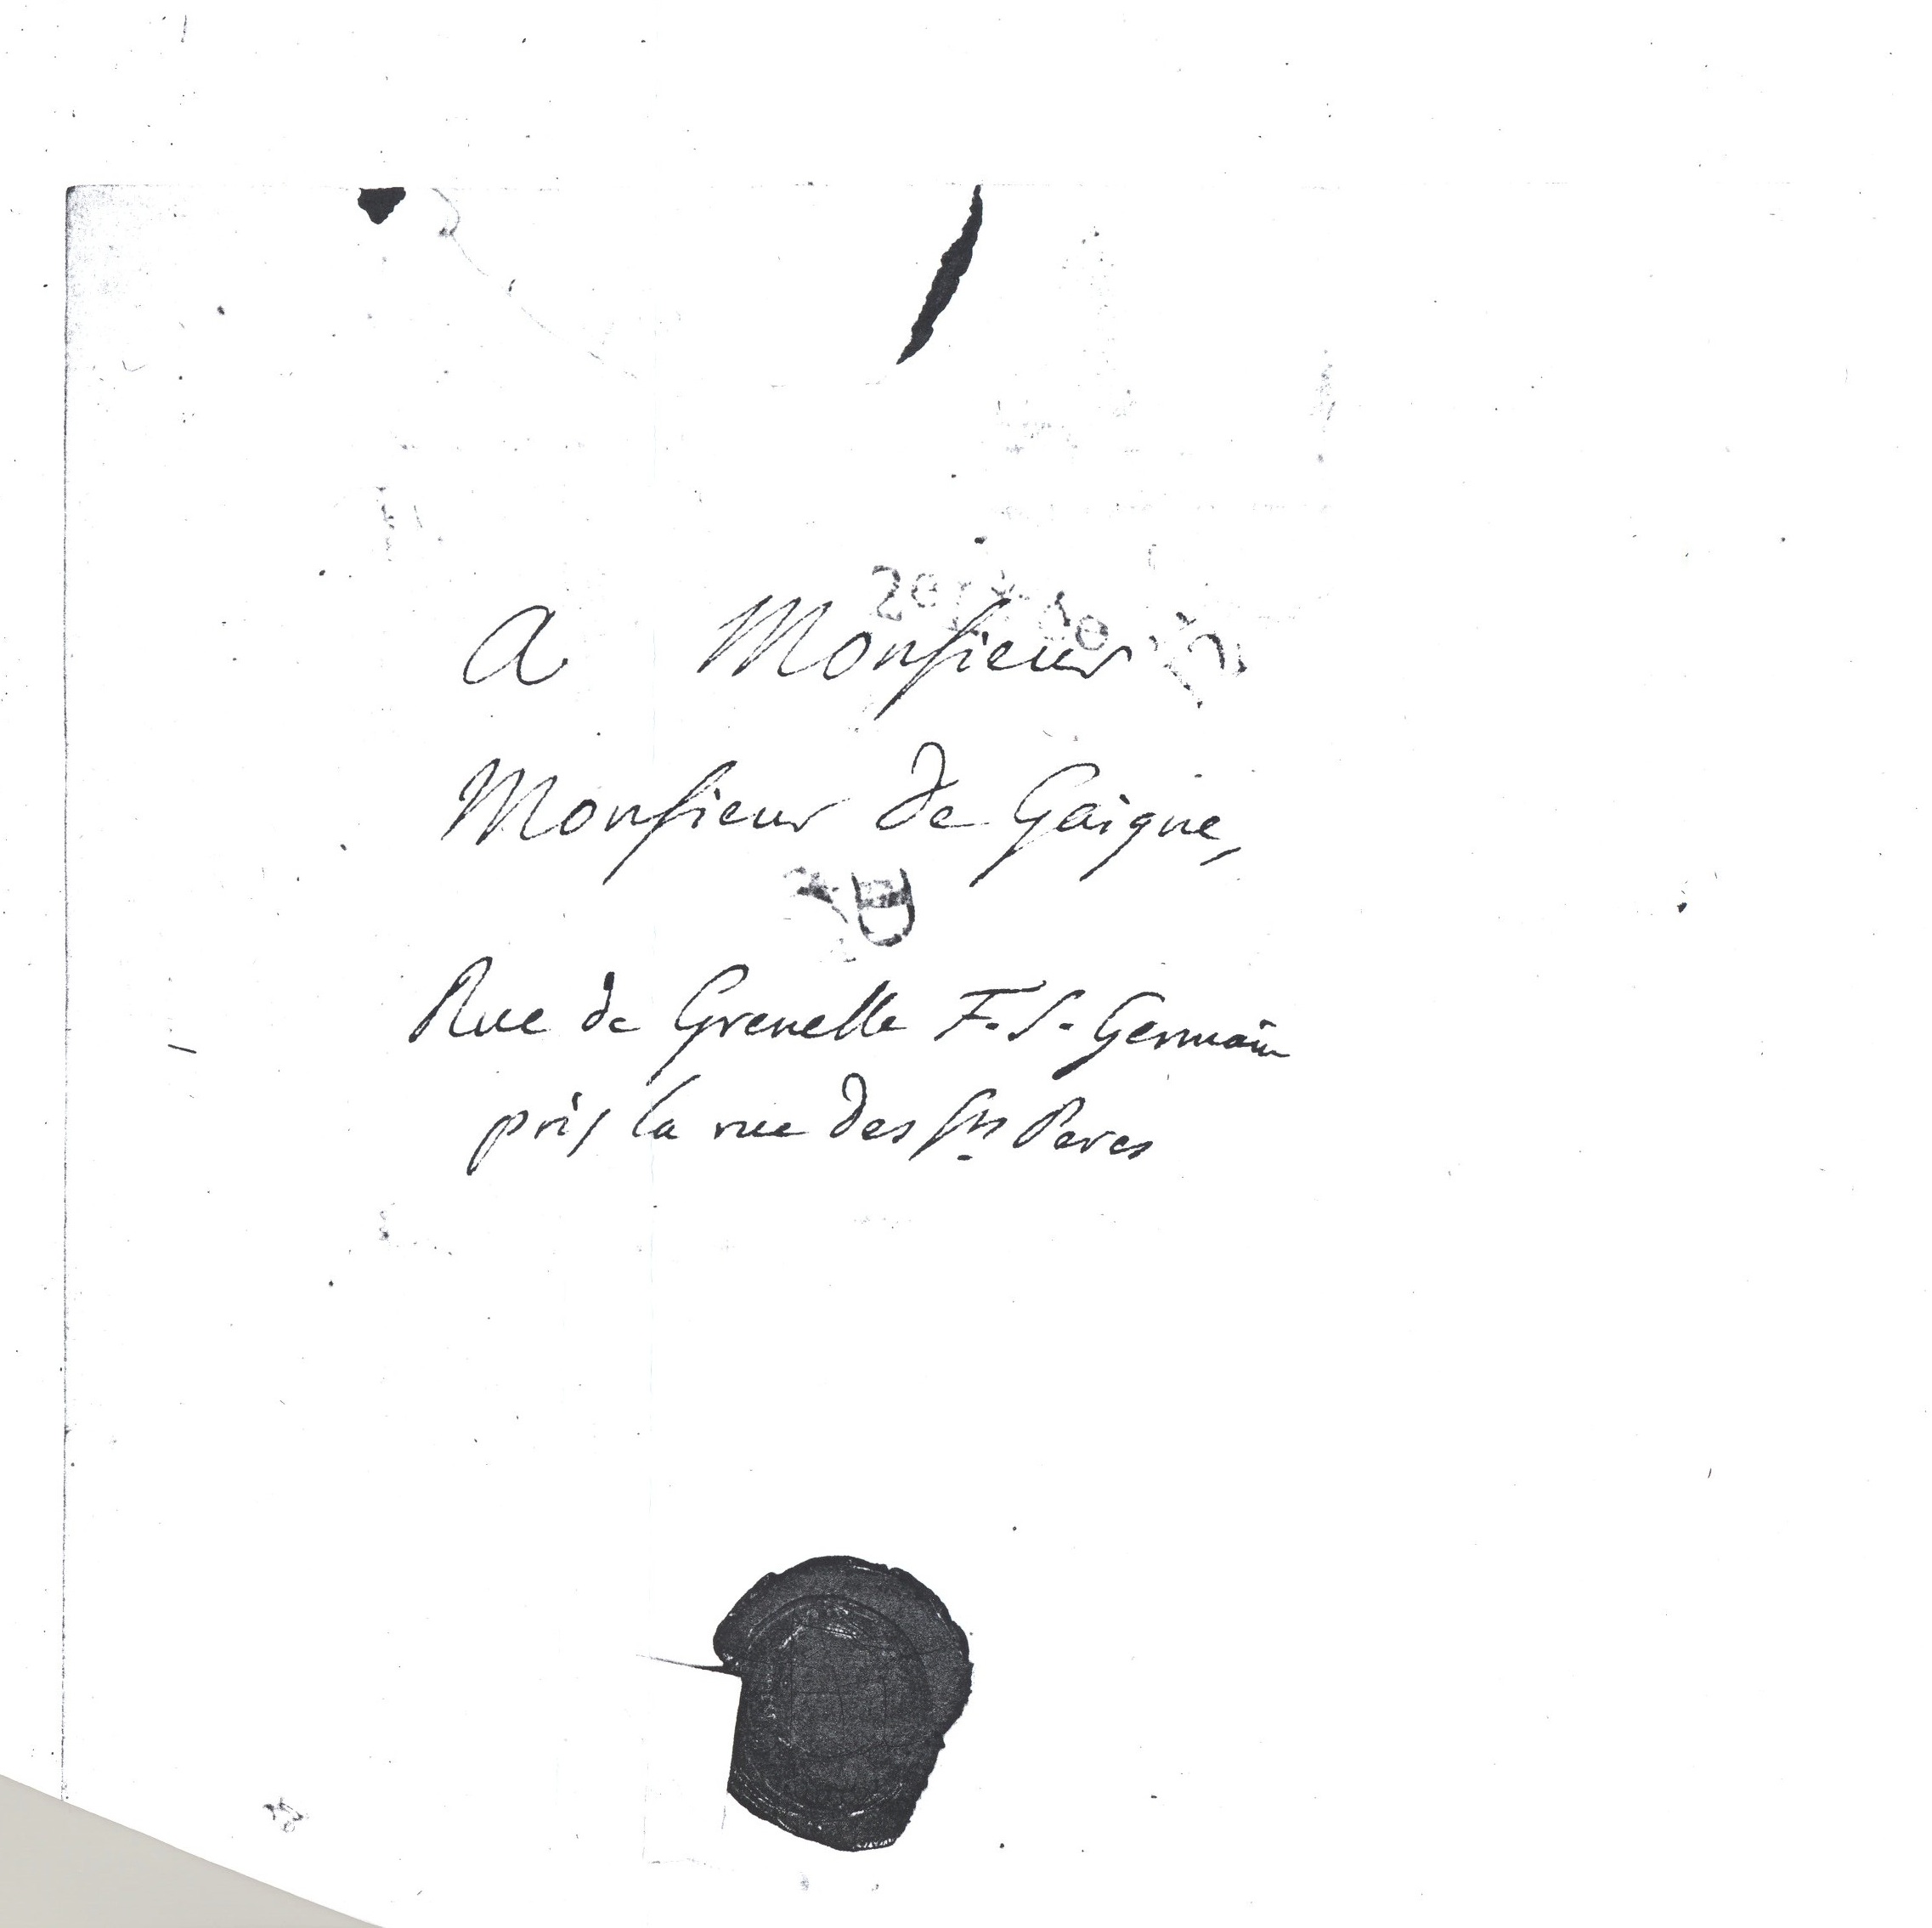 A Monsieur
Monsieur de Gaigne,
D
Rue de Grenelle F. S. Germain
près la rue des Sts Peres